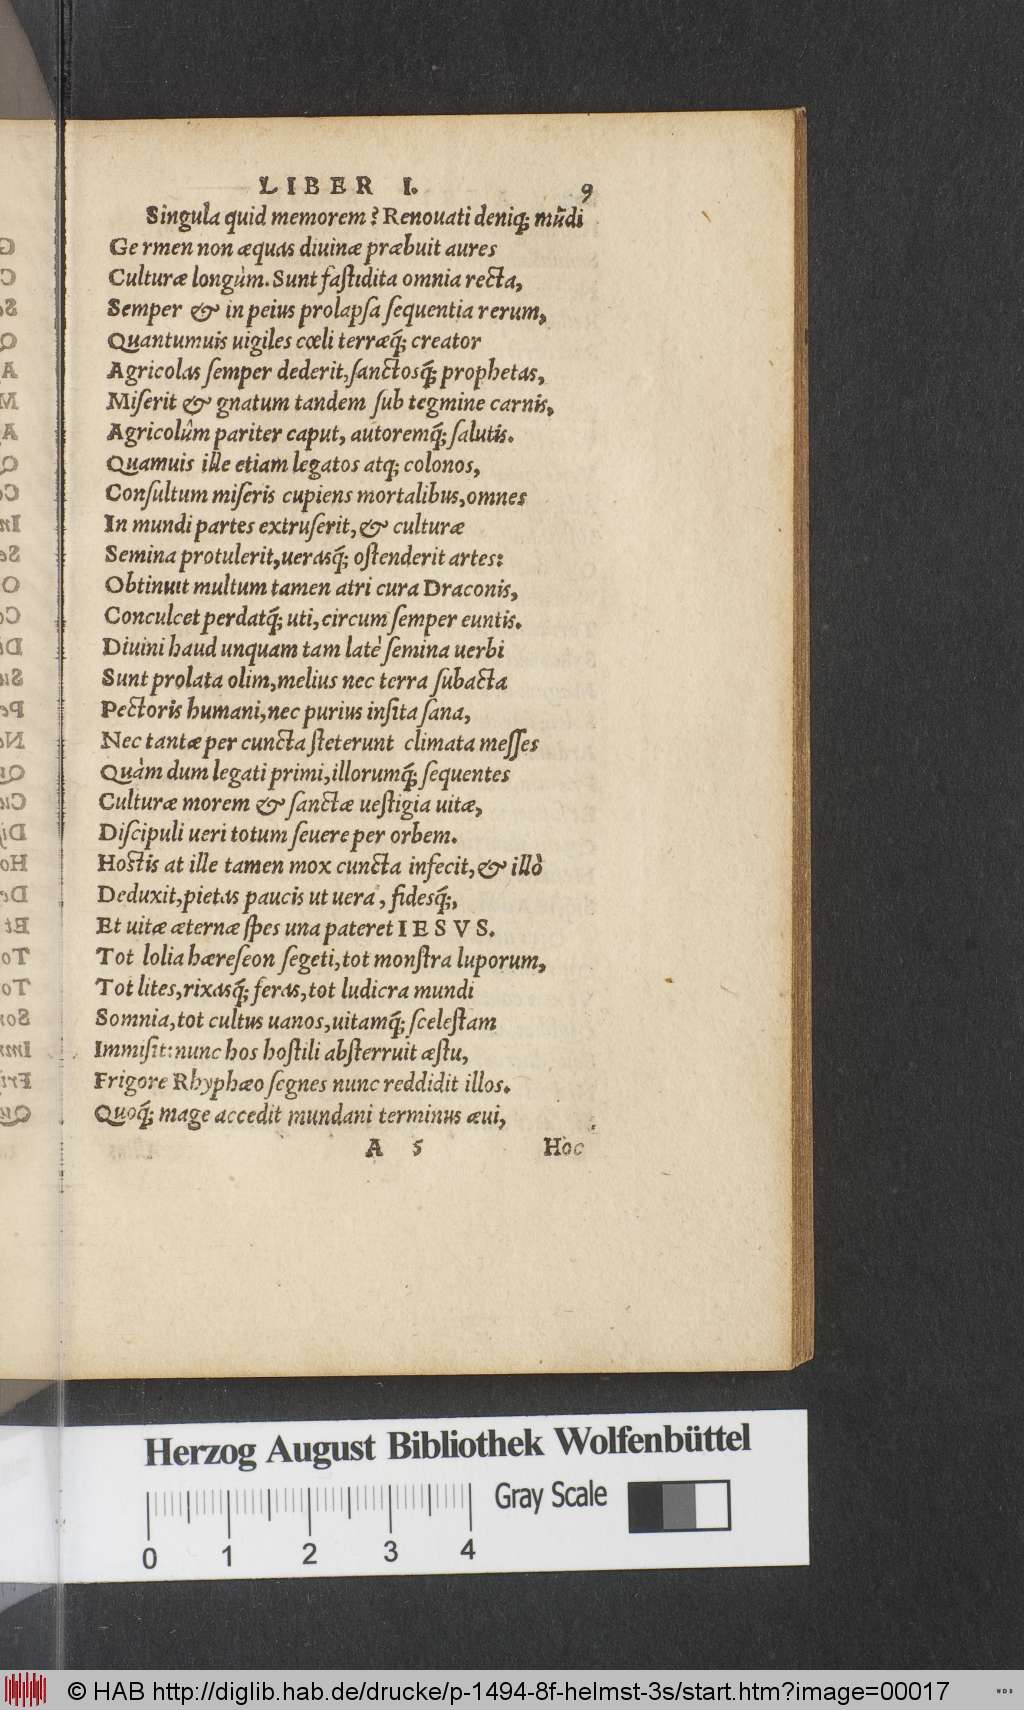 LIBER I. 9
Singula quid memorem? Renouati deniq; mũdi
Ge rmen non æquas diuinæ præbuit aures
Culturæ longùm. Sunt faſtidita omnia recta,
Semper & in peius prolapſa ſequentia rerum,
Quantumuis uigiles cœli terræq́; creator
Agricolas ſemper dederit, ſanctosq́; prophetas,
Miſerit & gnatum tandem ſub tegmine carnis,
Agricolûm pariter caput, autoremq́; ſalutis.
Quamuis ille etiam legatos atq; colonos,
Conſultum miſeris cupiens mortalibus, omnes
In mundi partes extruſerit, & culturæ
Semina protulerit, uerasq́; oſtenderit artes:
Obtinuit multum tamen atri cura Draconis,
Conculcet perdatq́; uti, circum ſemper euntis.
Diuini haud unquam tam latè ſemina uerbi
Sunt prolata olim, melius nec terra ſubacta
Pectoris humani, nec purius inſita ſana,
Nec tantæ per cuncta ſteterunt climata meſſes
Quàm dum legati primi, illorumq́; ſequentes
Culturæ morem & ſanctæ ueſtigia uitæ,
Diſcipuli ueri totum ſeuere per orbem.
Hostis at ille tamen mox cuncta infecit, & illò
Deduxit, pietas paucis ut uera, fidesq́;,
Et uitæ æternæ ſpes una pateret IESVS.
Tot lolia hæreſeon ſegeti, tot monſtra luporum,
Tot lites, rixasq́; feras, tot ludicra mundi
Somnia, tot cultus uanos, uitamq́; ſceleſtam
Immiſit: nunc hos hoſtili abſterruit æſtu,
Frigore Rhyphæo ſegnes nunc reddidit illos.
Quoq́; mage accedit mundani terminus æui,
A 5 Hoc
Herzog August Bibliothek Wolfenbüttel
Gray Scale
0 1 2 3 4
© HAB http://diglib.hab.de/drucke/p-1494-8f-helmst-3s/start.htm?image=00017